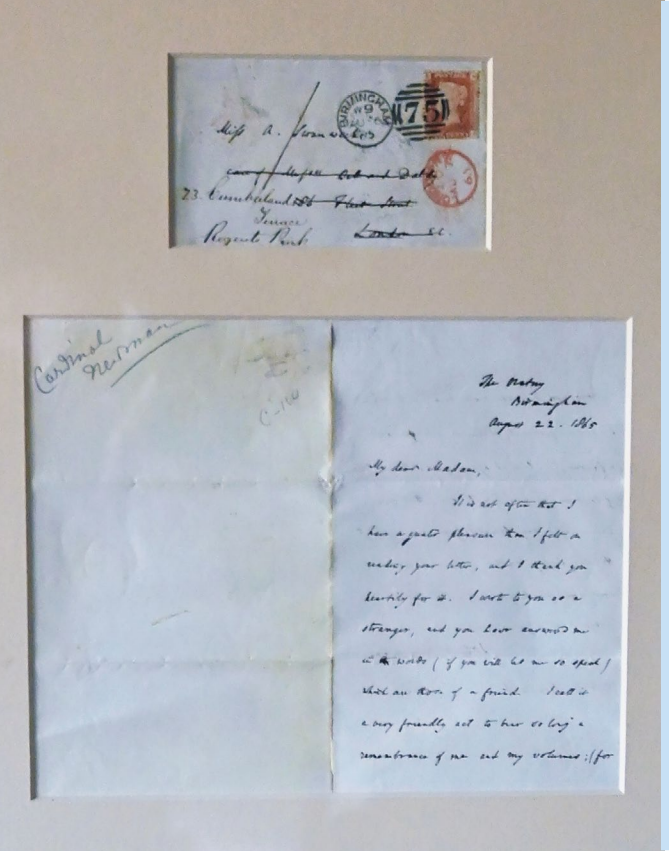 BIRMINGHAM
W9
65
75
Miss A. Swanwick
care of Messrs
23. Cumberland 186 Fleet Street
Terrace
Regents Park London EC.
Cardinal
Newman
The Oratory
Birmingham
August 22. 1865
My dear Madam,
It is not often that I
have a greater pleasure than I felt on
reading your letter, and I thank you
heartily for it. I wrote to you as a
stranger, and you have answered me
in words (if you will let me so speak)
which are those of a friend. I call it
a very friendly act to bear so long a
remembrance of me and my volumes; (for